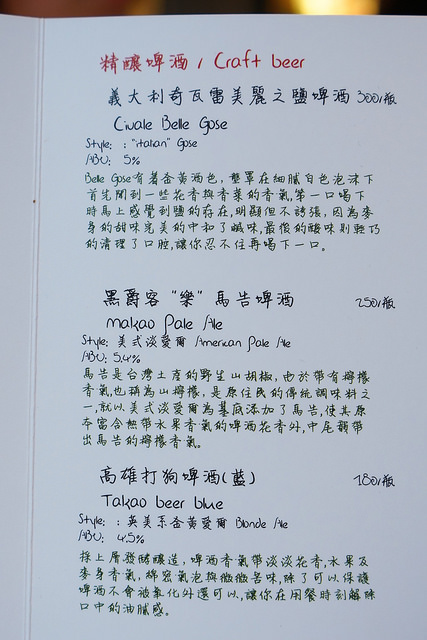 精釀啤酒 / Craft beer
義大利奇瓦雷美麗之鹽啤酒 300/瓶
Civale Belle Gose
Style: : "italian" Gose
ABV: 5%
Belle Gose有著金黃酒色,壟罩在細膩白色泡沫下
首先聞到一些花香與香菜的香氣,第一口喝下
時馬上感覺到鹽的存在,明顯但不誇張,因為麥
身的甜味完美的中和了鹹味,最後的酸味則輕巧
的清理了口腔,讓你忍不住再喝下一口。
黑爵客 "樂" 馬告啤酒 250/瓶
makao Pale Ale
Style: 美式淡愛爾 American Pale Ale
ABV: 5.4%
馬告是台灣土產的野生山胡椒,由於帶有檸檬
香氣,也稱為山檸檬,是原住民的傳統調味料之
一,就以美式淡愛爾為基底添加了馬告,使其原
本富含熱帶水果香氣的啤酒花香外,中尾韻帶
出馬告的檸檬香氣。
高雄打狗啤酒(藍) 180/瓶
Takao beer blue
Style: : 英美系金黃愛爾 Blonde Ale
ABV: 4.5%
採上層發酵釀造,啤酒香氣帶淡淡花香,水果及
麥身香氣,綿密氣泡與微微苦味,除了可以保護
啤酒不會被氧化外還可以,讓你在用餐時刻解除
口中的油膩感。